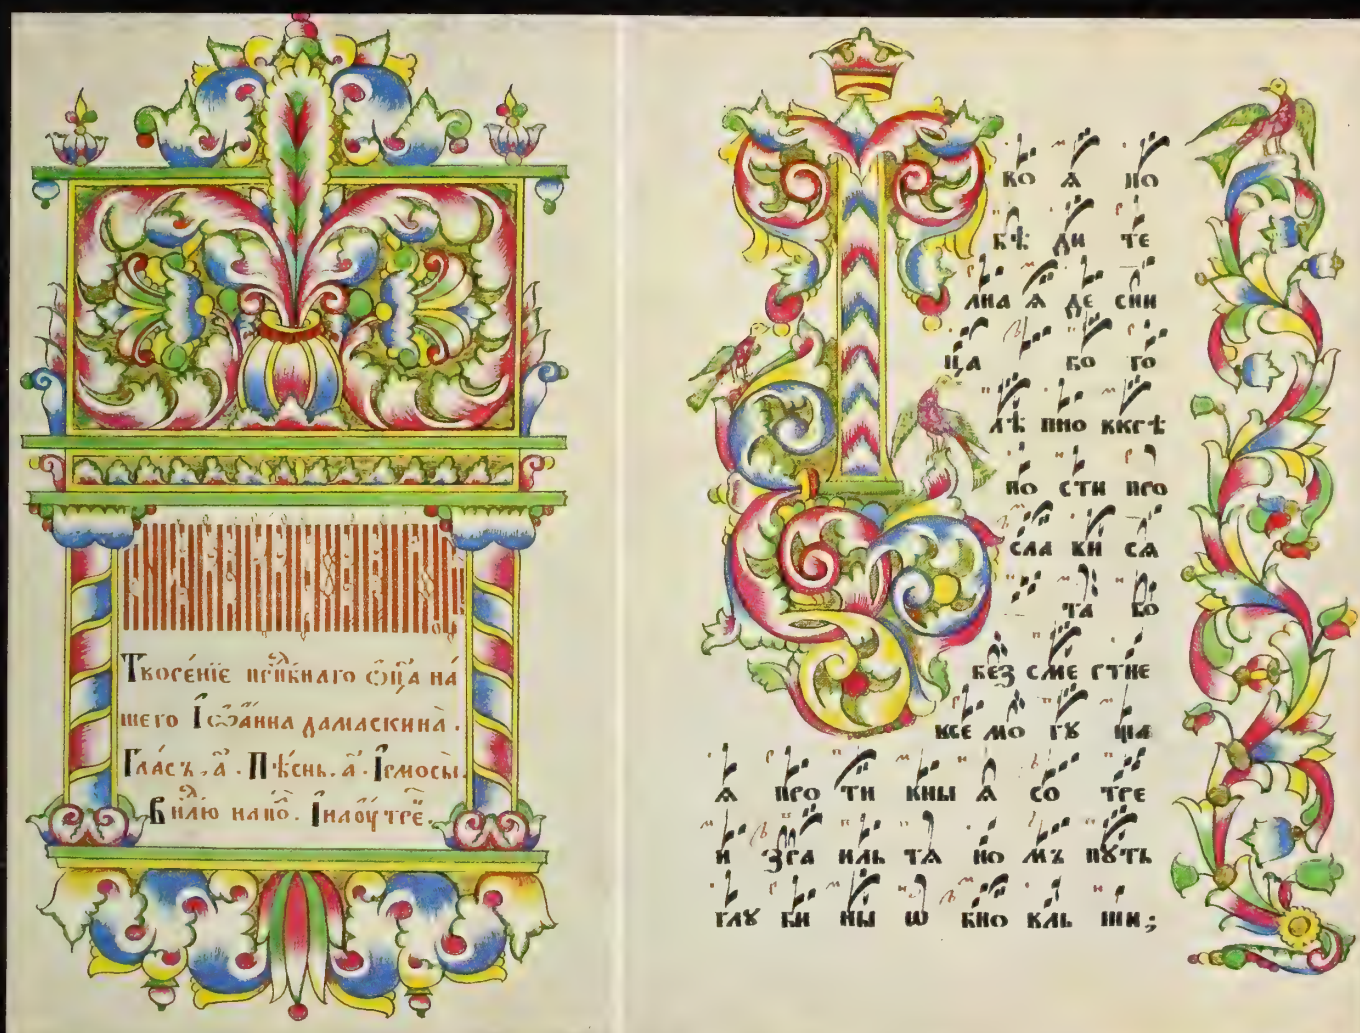 Творе́нїе прпⷣбнаго ѻ҆ц҃а на́
шего Іѡа́нна дамаскина̀.
Гла́съ, а҃. Пѣ́снь, а҃. І҆рмосы̀.
В нлⷣю на по̀. І҆ на оу҆́тре.
Т во ѧ по
бѣ ди те
лна ѧ де сни
ца бо го
лѣ пно вкрѣ
по сти про
сла ви сѧ
та бо
без сме ртне
все мо гꙋ ща
ѧ про ти вны ѧ со тре
и зра иль тѧ но мъ пꙋть
глꙋ би ны ѡ бно вль ши;